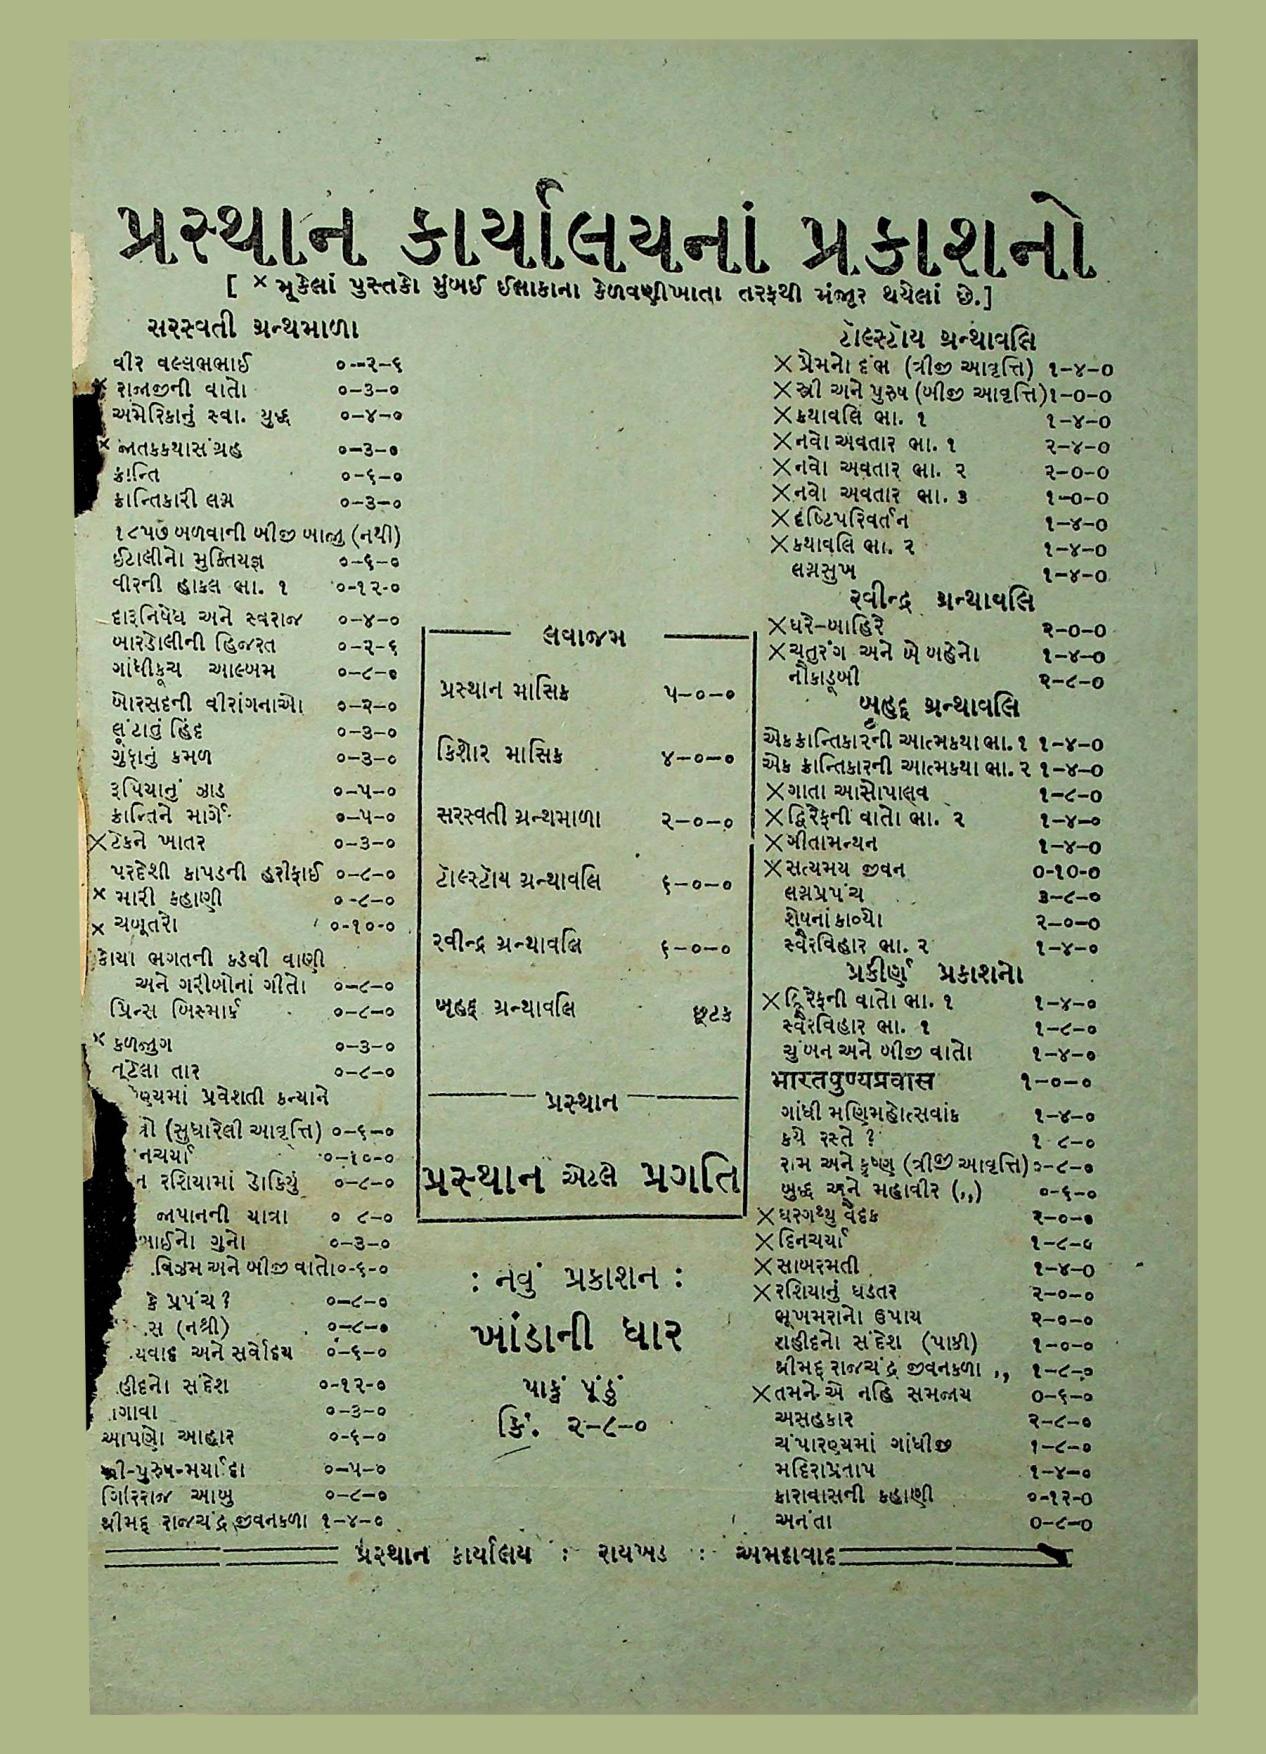 પ્રસ્થાન કાર્યાલયનાં પ્રકાશનો
[ × મૂકેલાં પુસ્તકો મુંબઈ ઈલાકાના કેળવણીખાતા તરફથી મંજૂર થયેલાં છે.]
સરસ્વતી ગ્રન્થમાળા
વીર વલ્લભભાઈ ૦-૨-૬
× રાજાજીની વાતો ૦-૩-૦
અમેરિકાનું સ્વા. યુદ્ધ ૦-૪-૦
× જાતકકથાસંગ્રહ ૦-૩-૦
ક્રાન્તિ ૦-૬-૦
ક્રાન્તિકારી લગ્ન ૦-૩-૦
૧૮૫૭ બળવાની બીજી બાજુ (નથી)
ઈટાલીનો મુક્તિયજ્ઞ ૦-૬-૦
વીરની હાકલ ભા. ૧ ૦-૧૨-૦
દારૂનિષેધ અને સ્વરાજ ૦-૪-૦
બારડોલીની હિજરત ૦-૨-૬
ગાંધીકૂચ આલ્બમ ૦-૮-૦
બોરસદની વીરાંગનાઓ ૦-૨-૦
લૂંટાતું હિંદ ૦-૩-૦
ગુંફાનું કમળ ૦-૩-૦
રૂપિયાનું ઝાડ ૦-૫-૦
ક્રાન્તિને માર્ગે ૦-૫-૦
× ટેકને ખાતર ૦-૩-૦
પરદેશી કાપડની હરીફાઈ ૦-૮-૦
× મારી કહાણી ૦-૮-૦
× ચબૂતરો ૦-૧૦-૦
કોયા ભગતની કડવી વાણી
અને ગરીબોનાં ગીતો ૦-૮-૦
પ્રિન્સ બિસ્માર્ક ૦-૮-૦
× કળજુગ ૦-૩-૦
તૂટેલા તાર ૦-૮-૦
ણ્યમાં પ્રવેશતી કન્યાને
ત્રો (સુધારેલી આવૃત્તિ) ૦-૬-૦
નચર્યા ૦-૧૦-૦
ન રશિયામાં ડોકિયું ૦-૮-૦
જાપાનની યાત્રા ૦ ૮-૦
ભાઈનો ગુનો ૦-૩-૦
વિઝમ અને બીજી વાતો ૦-૬-૦
કે પ્રપંચ? ૦-૮-૦
સ (નશ્રી) ૦-૮-૦
યવાદ અને સર્વોદય ૦-૬-૦
હીદનો સંદેશ ૦-૧૨-૦
ગાવા ૦-૩-૦
આપણો આહાર ૦-૬-૦
સ્ત્રી-પુરુષ-મર્યાદા ૦-૫-૦
ગિરિરાજ આબુ ૦-૮-૦
શ્રીમદ્ રાજચંદ્ર જીવનકળા ૧-૪-૦
લવાજમ
પ્રસ્થાન માસિક ૫-૦-૦
કિશોર માસિક ૪-૦-૦
સરસ્વતી ગ્રન્થમાળા ૨-૦-૦
ટૉલ્સ્ટૉય ગ્રન્થાવલિ ૬-૦-૦
રવીન્દ્ર ગ્રન્થાવલિ ૬-૦-૦
બૃહદ્ ગ્રન્થાવલિ છૂટક
પ્રસ્થાન
પ્રસ્થાન એટલે પ્રગતિ
: નવું પ્રકાશન :
ખાંડાની ધાર
પાકું પૂંઠું
કિં. ૨-૮-૦
ટૉલ્સ્ટૉય ગ્રન્થાવલિ
× પ્રેમનો દંભ (ત્રીજી આવૃત્તિ) ૧-૪-૦
× સ્ત્રી અને પુરુષ (બીજી આવૃત્તિ) ૧-૦-૦
× કથાવલિ ભા. ૧ ૧-૪-૦
× નવો અવતાર ભા. ૧ ૨-૪-૦
× નવો અવતાર ભા. ૨ ૨-૦-૦
× નવો અવતાર ભા. ૩ ૧-૦-૦
× દૃષ્ટિપરિવર્તન ૧-૪-૦
× કથાવલિ ભા. ૨ ૧-૪-૦
લગ્નસુખ ૧-૪-૦
રવીન્દ્ર ગ્રન્થાવલિ
× ઘરે-બાહિરે ૨-૦-૦
× ચતુરંગ અને બે બહેનો ૧-૪-૦
નૌકાડૂબી ૨-૮-૦
બૃહદ્ ગ્રન્થાવલિ
એક ક્રાન્તિકારની આત્મકથા ભા. ૧ ૧-૪-૦
એક ક્રાન્તિકારની આત્મકથા ભા. ૨ ૧-૪-૦
× ગાતા આસોપાલવ ૧-૮-૦
× દ્વિરેફની વાતો ભા. ૨ ૧-૪-૦
× ગીતામન્થન ૧-૪-૦
× સત્યમય જીવન ૦-૧૦-૦
લગ્નપ્રપંચ ૩-૮-૦
શેષનાં કાવ્યો ૨-૦-૦
સ્વૈરવિહાર ભા. ૨ ૧-૪-૦
પ્રકીર્ણ પ્રકાશનો
× દ્વિરેફની વાતો ભા. ૧ ૧-૪-૦
સ્વૈરવિહાર ભા. ૧ ૧-૮-૦
ચુંબન અને બીજી વાતો ૧-૪-૦
भारतपुण्यप्रवास ૧-૦-૦
ગાંધી મણિમહોત્સવાંક ૧-૪-૦
કયે રસ્તે ? ૧ ૮-૦
રામ અને કૃષ્ણ (ત્રીજી આવૃત્તિ) ૦-૮-૦
બુદ્ધ અને મહાવીર (,,) ૦-૬-૦
× ઘરગથ્થુ વૈદક ૨-૦-૦
× દિનચર્યા ૧-૮-૦
× સાબરમતી ૧-૪-૦
× રશિયાનું ઘડતર ૨-૦-૦
ભૂખમરાનો ઉપાય ૨-૦-૦
શહીદનો સંદેશ (પાકી) ૧-૦-૦
શ્રીમદ્ રાજચંદ્ર જીવનકળા ,, ૧-૮-૦
× તમને એ નહિ સમજાય ૦-૬-૦
અસહકાર ૨-૮-૦
ચંપારણ્યમાં ગાંધીજી ૧-૮-૦
મદિરાપ્રતાપ ૧-૪-૦
કારાવાસની કહાણી ૦-૧૨-૦
અનંતા ૦-૮-૦
પ્રસ્થાન કાર્યાલય : રાયખડ : અમદાવાદ